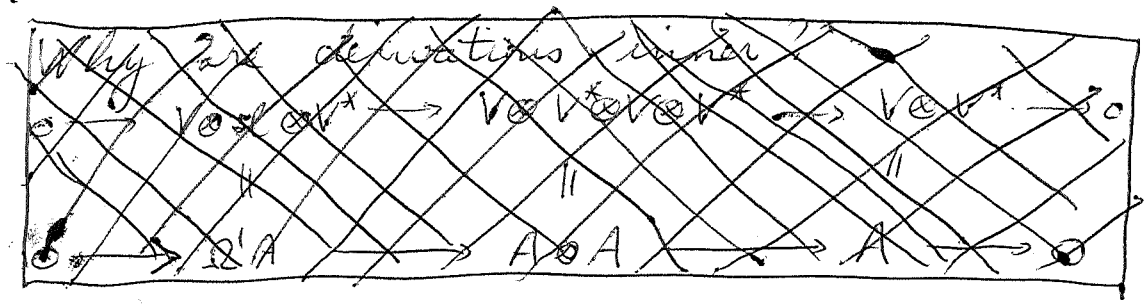 Why are derivations inner?
0 → V⊗sl⊗V* → V⊗V*⊗V⊗V* → V⊗V* → 0
|| || ||
0 → Ω¹A → A⊗A → A → 0